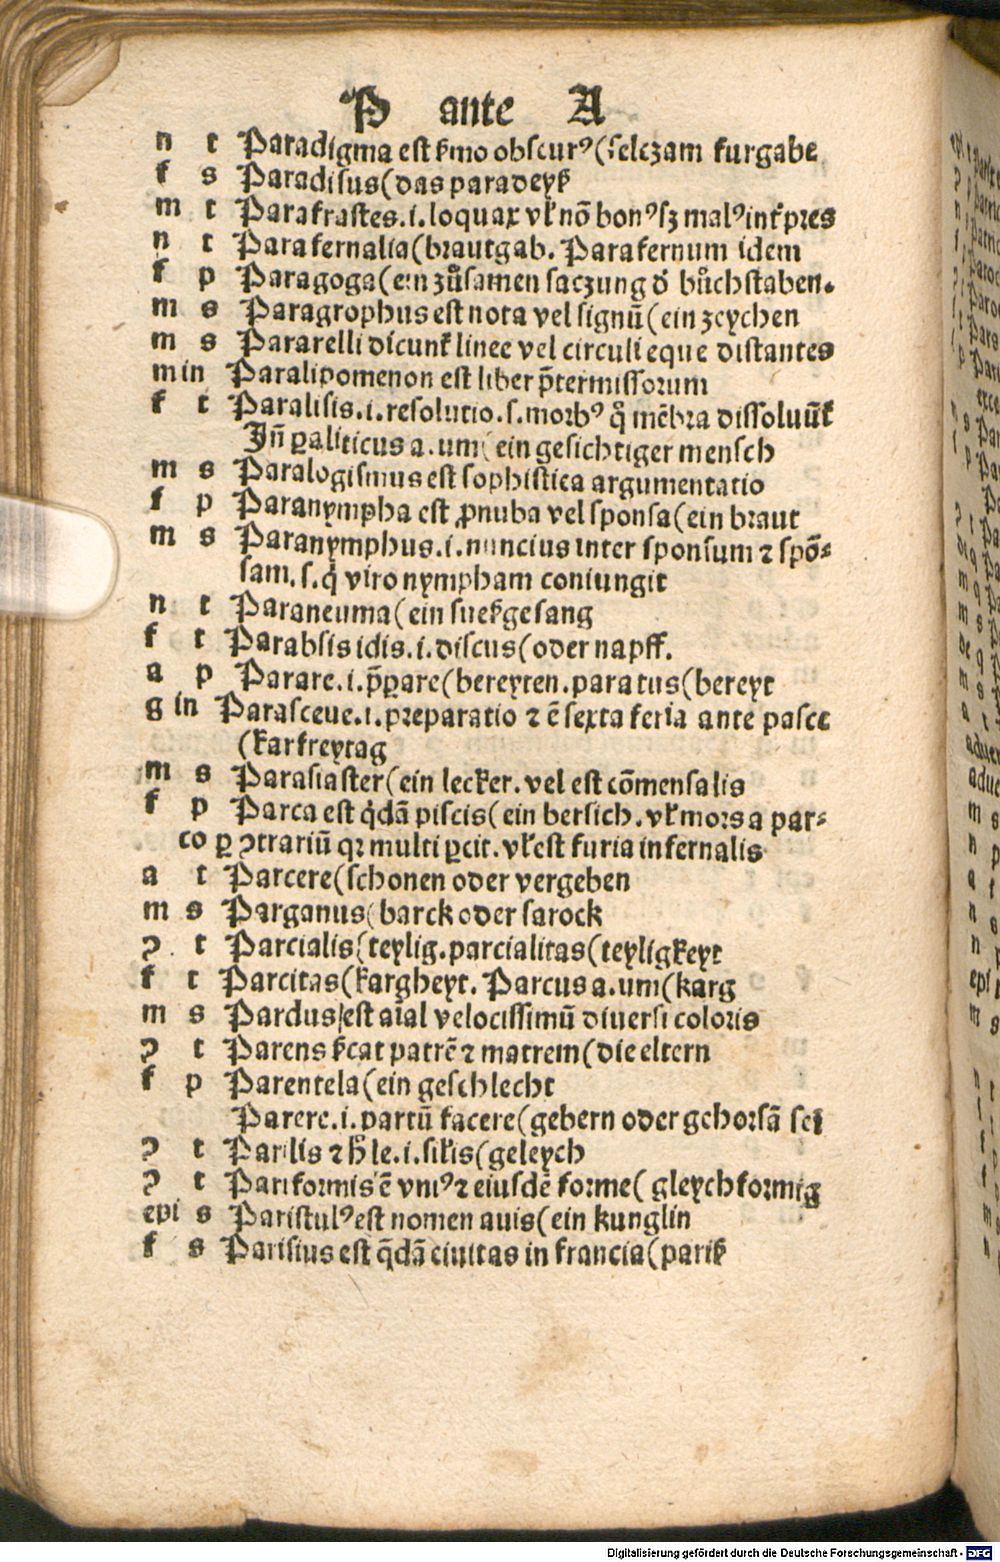 P ante A
n t Paradigma est ẜmo obscurꝰ (selczam furgabe
f s Paradisus (das paradeyß
m t Parafrastes .i. loquax vł nō bonꝰ sꝫ malꝰ intp̄res
n t Parafernalia (brautgab. Parafernum idem
f p Paragoga (ein zůsamen saczung d' bůchstaben.
m s Paragrophus est nota vel signū (ein zeychen
m s Pararelli dicunt᷑ linee vel circuli eque distantes
m in Paralipomenon est liber p̄termissorum
f t Paralisis .i. resolutio .s. morbꝰ q̄ mēbra dissoluūt᷑
Jn̄ ꝑaliticus a. um (ein gesichtiger mensch
m s Paralogismus est sophistica argumentatio
f p Paranympha est ꝓnuba vel sponsa (ein braut
m s Paranymphus .i. nuncius inter sponsum ⁊ spō⸗
sam. s. q̇ viro nympham coniungit
n t Paraneuma (ein sueßgesang
f t Parabsis idis .i. discus (oder napff.
a p Parare .i. p̄ꝑare (bereyten. paratus (bereyt
g in Parasceue .i. preparatio ⁊ ē sexta feria ante pasce
(karfreytag
m s Parasiaster (ein lecker. vel est cōmensalis
f p Parca est q̇dā piscis (ein bersich. vł mors a par⸗
co ꝑ ꝯtrariū qꝛ multi ꝑcit. vł est furia infernalis
a t Parcere (schonen oder vergeben
m s Parganus (barck oder sarock
ꝯ t Parcialis (teylig. parcialitas (teyligkeyt
f t Parcitas (kargheyt. Parcus a. um (karg
m s Pardus est aīal velocissimū diuersi coloris
ꝯ t Parens ẜcat patrē ⁊ matrem (die eltern
f p Parentela (ein geschlecht
Parere .i. partū facere (gebern oder gehorsā sei
ꝯ t Parilis ⁊ h̊ le .i. siłis (geleych
ꝯ t Pariformis ē vniꝰ ⁊ eiusdē forme (gleychformig
epi s Paristulꝰ est nomen auis (ein kunglin
f s Parisius est q̄dā ciuitas in francia (pariß
Digitalisierung gefördert durch die Deutsche Forschungsgemeinschaft - DFG